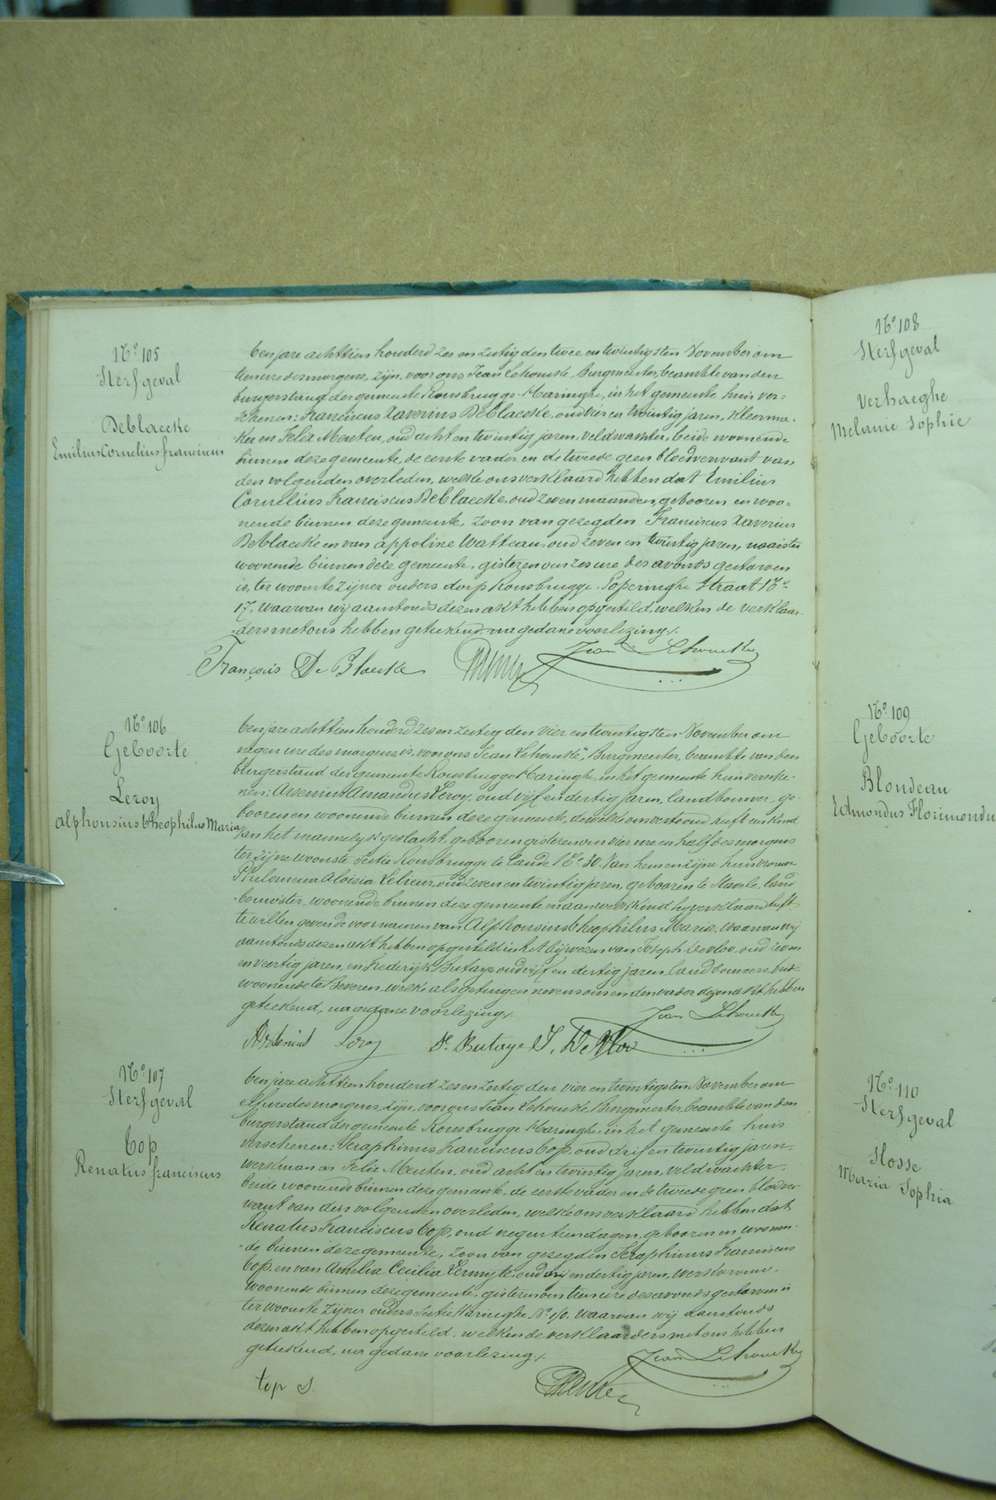 N.° 105
Sterfgeval
Deblaecke
Emilius Cornelius Franciscus
ten jare achttien honderd zes en zestig den twee en twintigsten November om
tien ure des morgens, zijn voor ons Jean Lehoucke, Burgmeester, beambte van den
burgerstand der gemeente Rousbrugge-Haringhe, in het gemeente huis ver-
schenen: Franciscus Xaverius Deblaecke, oud vier en twintig jaren, kleerma-
ker en Felix Meuten, oud acht en twintig jaren, veldwachter, beide woonende
binnen deze gemeente, de eerste vader en de tweede geen bloedverwant van
den volgenden overleden, welke ons verklaard hebben dat Emilius
Cornelius Franciscus Deblaecke, oud zeven maanden, geboren en woo-
nende binnen deze gemeente, zoon van gezegden Franciscus Xaverius
Deblaecke en van Appoline Watteau, oud zeven en twintig jaren, naaister
woonende binnen deze gemeente, gisteren om zes ure des avonds gestorven
is, ter woonste zijner ouders dorp Rousbrugge Poperinghe Straat N.°
17, waarvan wij aanstonds dezen akt hebben opgesteld, welken de verklaar-
ders met ons hebben geteekend, na gedane voorlezing.
François De Blaecke Jean Lehoucke
N.° 106
Geboorte
Leroy
Alphonsius Theophilus Maria
ten jare achttien honderd zes en zestig den vier en twintigsten November om
negen ure des morgens is, voor ons Jean Lehoucke, Burgmeester, beambte van den
burgerstand der gemeente Rousbrugge Haringhe, in het gemeente huis versche-
nen: Arsenius Amandus Leroy, oud vijf en dertig jaren, landbouwer, ge-
boren en woonende binnen deze gemeente, dewelke ons vertoond heeft een kind
van het mannelijk geslacht, geboren gisteren om vier ure en half des morgens
ter zijne woonste Sectie Rousbrugge te Lande N.° 30. Van hem en zijne huisvrouw
Philomena Aloisia oud zeven en twintig jaren, geboren te Stavele, land-
bouwster, woonende binnen deze gemeente en aan welk kind hij verklaard heeft
te willen geven de voornamen van Alphonsius Theophilus Maria, waarvan wij
aanstonds dezen akt hebben opgesteld in het bijwezen van Joseph Devloo, oud
en veertig jaren, en Frederijk Butaye oud vijf en dertig jaren, landbouwers, beide
woonende te Beveren, welke als getuigen nevens ons en den vader dezen akt hebben
geteekend, na gedane voorlezing.
Jean Lehoucke
Arsenius Leroy F. Butaye J. De Vloo
N.° 107
Sterfgeval
Cop
Renatus Franciscus
ten jare achttien honderd zes en zestig den vier en twintigsten November om
elf ure des morgens, zijn, voor ons Jean Lehoucke Burgmeester, beambte van den
burgerstand der gemeente Rousbrugge Haringhe, in het gemeente huis
verschenen: Seraphinus Franciscus Cop, oud drij en twintig jaren,
werkman en Felix Meuten, oud acht en twintig jaren, veldwachter,
beide woonende binnen deze gemeente, de eerste vader en de tweede geen bloedver-
want van den volgenden overleden, welke ons verklaard hebben dat
Renatus Franciscus Cop, oud negentien dagen, geboren en woonen-
de binnen deze gemeente, zoon van gezegden Seraphinus Franciscus
Cop, en van Amelia Cecilia Vermijt, oud en dertig jaren, werkvrouw,
woonende binnen deze gemeente, gisteren om tien ure des avonds gestorven is
ter woonste zijner ouders Sectie Haringhe N.° 40, waarvan wij aanstonds
dezen akt hebben opgesteld, welken de verklaarders met ons hebben
geteekend, na gedane voorlezing.
Jean Lehoucke
Cop S
N.° 108
Sterfgeval
Verhaeghe
Melanie Sophie
N.° 109
Geboorte
Blondeau
Edmondus Florimondu
N.° 110
Sterfgeval
Hosse
Maria Sophia